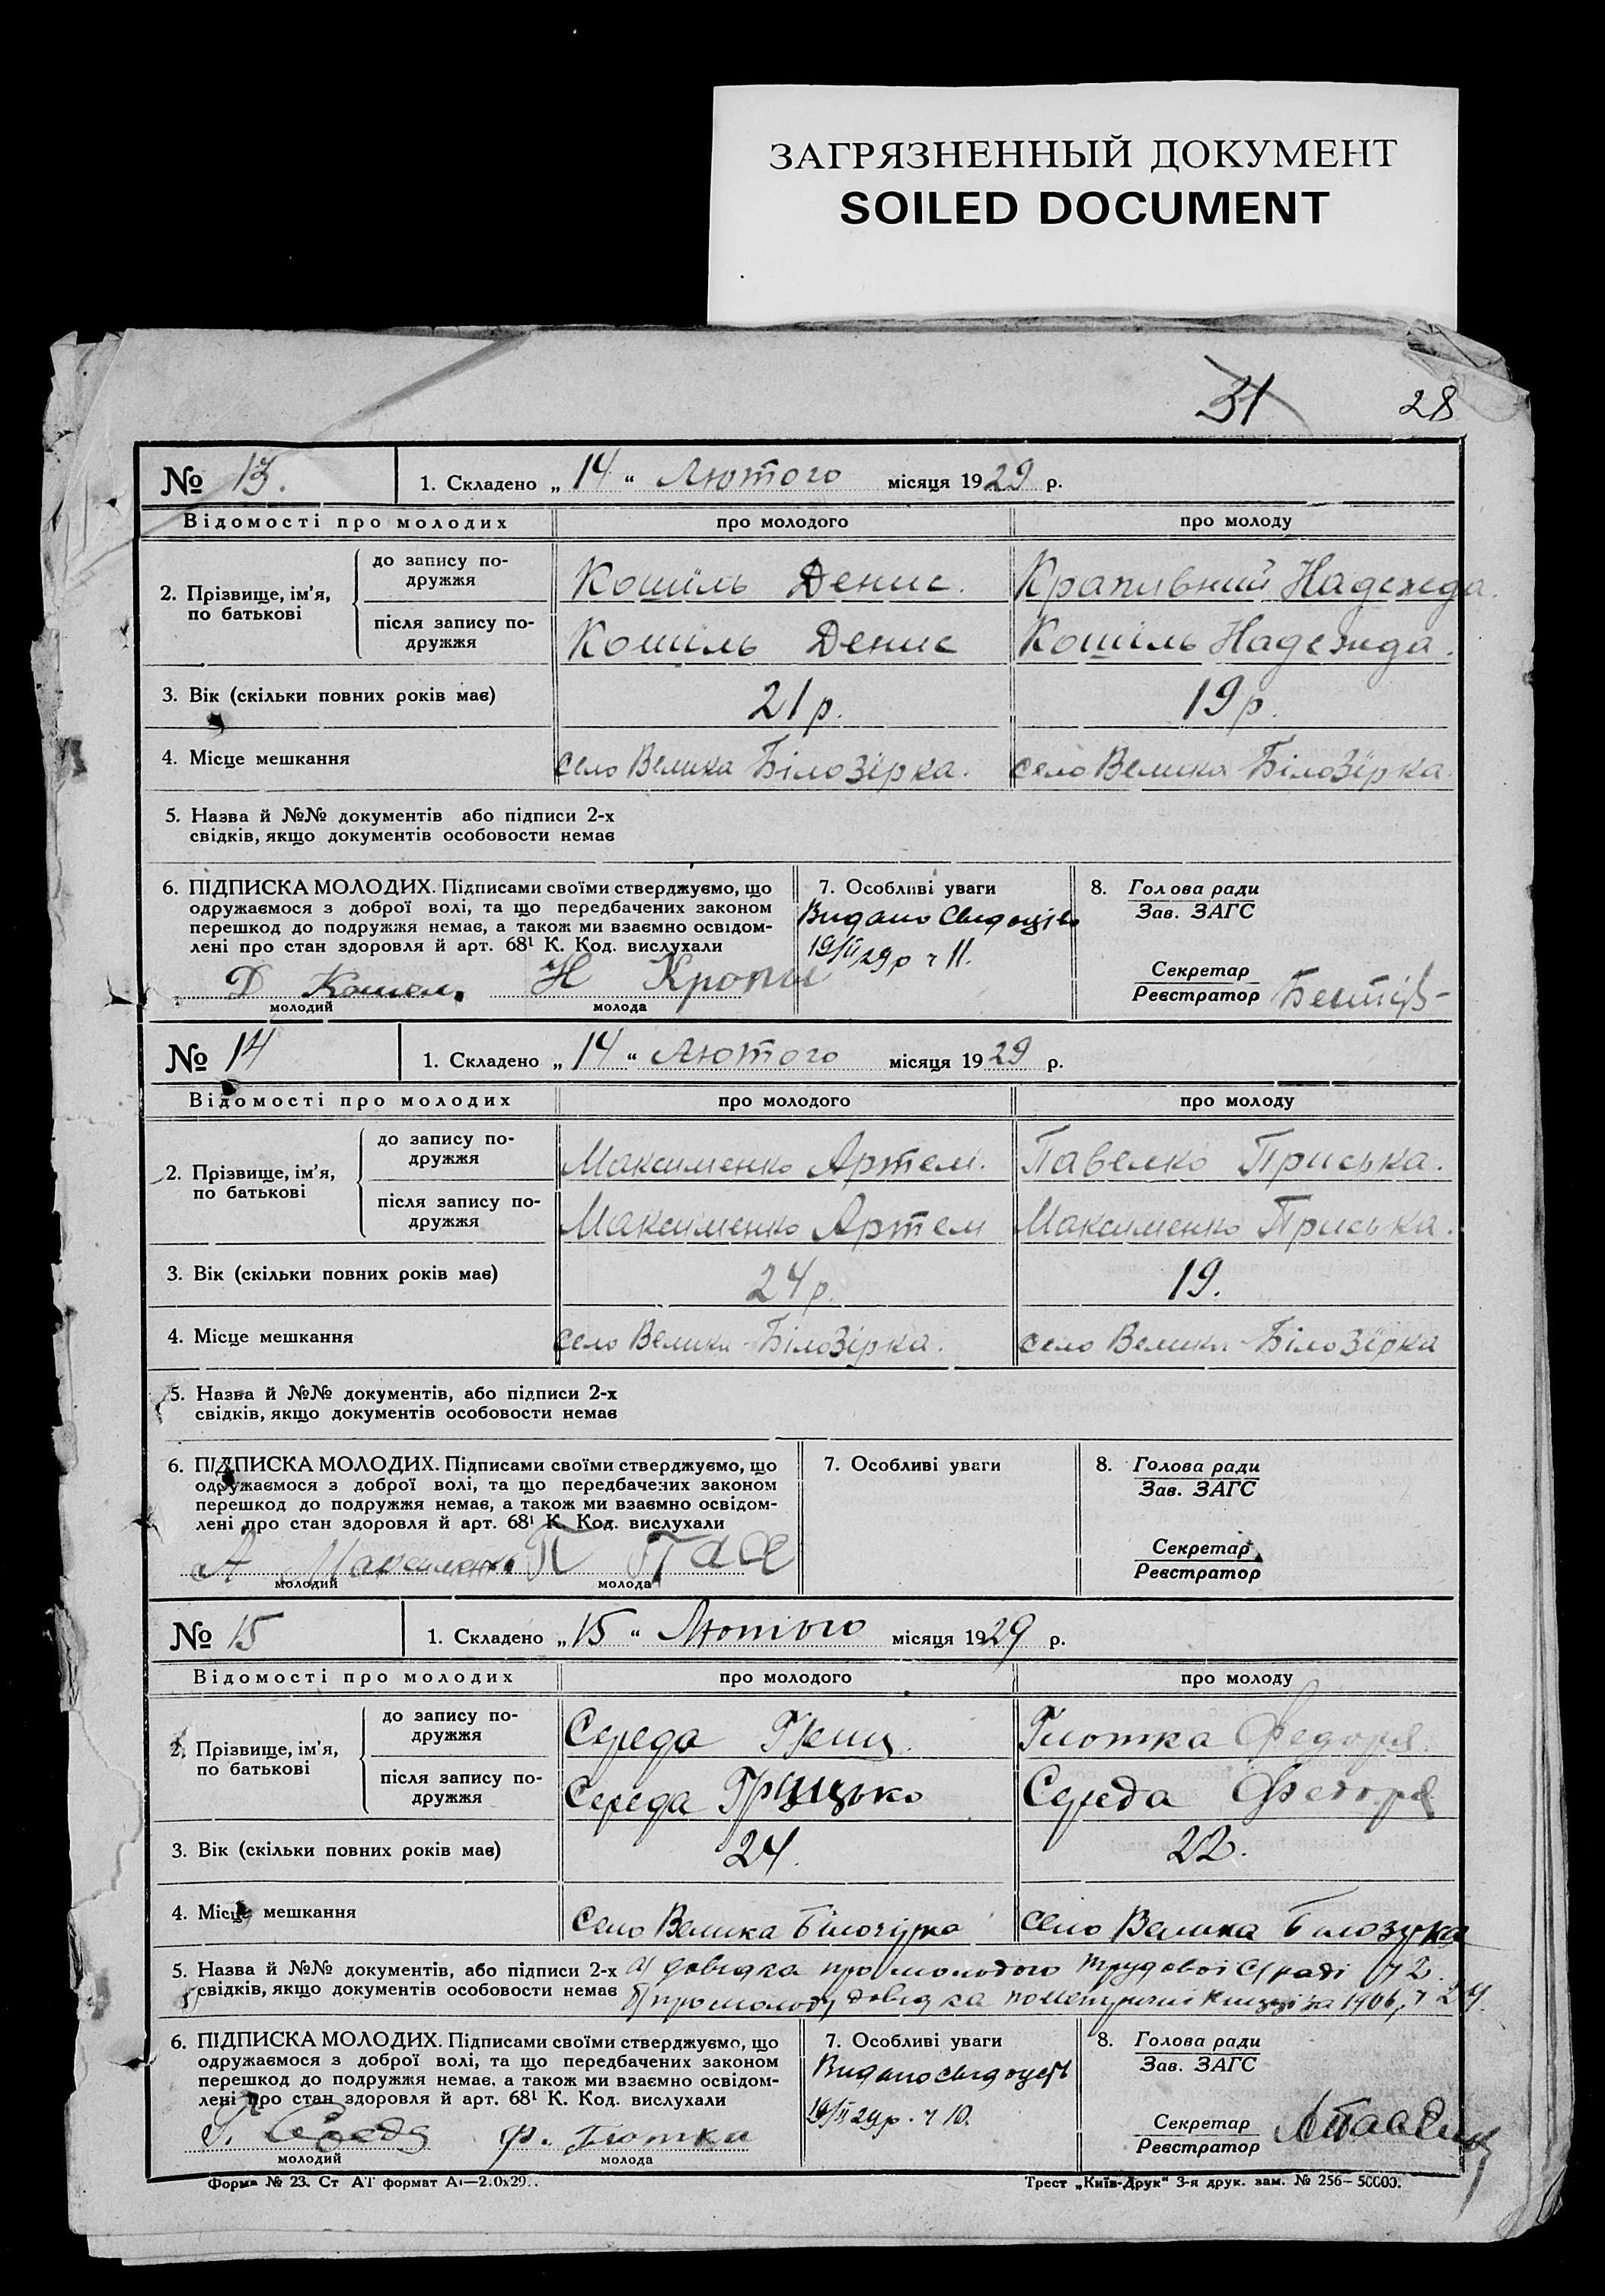 ЗАГРЯЗНЕННЫЙ ДОКУМЕНТ
SOILED DOCUMENT
31 28
№ 13. 1. Складено „ 14 “ Лютого місяця 1929 р.
Відомості про молодих про молодого про молоду
2. Прізвище, ім'я, по батькові
до запису подружжя Кошіль Денис. Крапивний Надежда.
після запису подружжя Кошіль Денис Кошіль Надежда.
3. Вік (скільки повних років має) 21 р. 19 р.
4. Місце мешкання село Велика Білозірка. село Велика Білозірка.
5. Назва й №№ документів або підписи 2-х
свідків, якщо документів особовости немає
6. ПІДПИСКА МОЛОДИХ. Підписами своїми стверджуємо, що
одружаємося з доброї волі, та що передбачених законом
перешкод до подружжя немає, а також ми взаємно освідом-
лені про стан здоровля й арт. 68¹ К. Код. вислухали
Д Кошел. Н Кропи
молодий молода
7. Особливі уваги
Видано
19/II 29 р ч 11.
8. Голова ради
Зав. ЗАГС
Секретар
Реєстратор
№ 14 1. Складено „ 14 “ Лютого місяця 1929 р.
Відомості про молодих про молодого про молоду
2. Прізвище, ім'я, по батькові
до запису подружжя Максименко Артем. Павелко Приська.
після запису подружжя Максименко Артем Максименко Приська.
3. Вік (скільки повних років має) 24 р. 19.
4. Місце мешкання село Велика-Білозірка. село Велика-Білозірка
5. Назва й №№ документів, або підписи 2-х
свідків, якщо документів особовости немає
6. ПІДПИСКА МОЛОДИХ. Підписами своїми стверджуємо, що
одружаємося з доброї волі, та що передбачених законом
перешкод до подружжя немає, а також ми взаємно освідом-
лені про стан здоровля й арт. 68¹ К. Код. вислухали
А Максименко П
молодий молода
7. Особливі уваги
8. Голова ради
Зав. ЗАГС
Секретар
Реєстратор
№ 15 1. Складено „ 15 “ Лютого місяця 1929 р.
Відомості про молодих про молодого про молоду
2. Прізвище, ім'я, по батькові
до запису подружжя Середа Глотка
після запису подружжя Середа Грицько Середа
3. Вік (скільки повних років має) 24. 22.
4. Місце мешкання село Велика Білозірка село Велика Білозірка
5. Назва й №№ документів, або підписи 2-х а) довідка про молодого ч 2.
свідків, якщо документів особовости немає б) про молоду довідка по метричній книзі за 1906, ч 24.
6. ПІДПИСКА МОЛОДИХ. Підписами своїми стверджуємо, що
одружаємося з доброї волі, та що передбачених законом
перешкод до подружжя немає, а також ми взаємно освідом-
лені про стан здоровля й арт. 68¹ К. Код. вислухали
Г. Середа Ф. Глотка
молодий молода
7. Особливі уваги
Видано
19/II 29 р. ч 10.
8. Голова ради
Зав. ЗАГС
Секретар
Реєстратор
Форма № 23. Ст АТ формат
Трест „Київ-Друк“ 3-я друк. зам. № 256—50000.